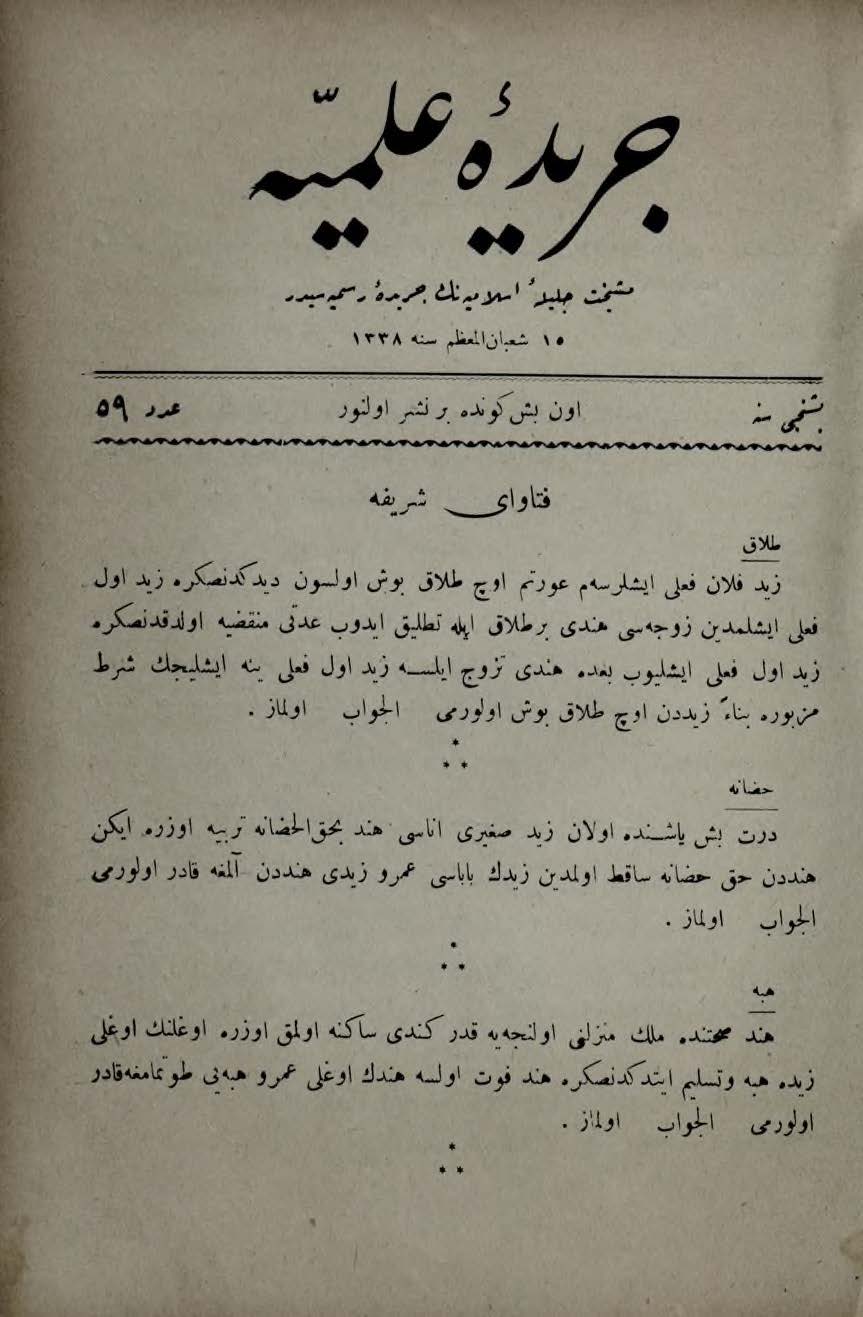 جریدهٔ علمیّه
مشیخت جلیلهٔ اسلامیه‌نك جریدهٔ رسمیه‌سیدر
١٥ شعبان‌المعظم سنه ١٣٣٨
بشنجی سنه
اون بش كونده بر نشر اولنور
عدد ٥٩
فتاوای شریفه
طلاق
زید فلان فعلی ایشلرسه‌م عورتم اوچ طلاق بوش اولسون دیدكدنصكره زید اول
فعلی ایشلمدین زوجه‌سی هندی بر طلاق ایله تطلیق ایدوب عدتی منقضیه اولدقدنصكره
زید اول فعلی ایشلیوب بعده هندی تزوج ایلسه زید اول فعلی ینه ایشلیجك شرط
مزبوره بناءً زیددن اوچ طلاق بوش اولورمی الجواب اولماز .
* * *
حضانه
درت بش یاشنده اولان زید صغیری اناسی هند بحق‌الحضانه تربیه اوزره ایكن
هنددن حق حضانه ساقط اولمدین زیدك باباسی عمرو زیدی هنددن آلمغه قادر اولورمی
الجواب اولماز .
* * *
هبه
هند صحتنده ملك منزلنی اولنجه‌یه قدر كندی ساكنه اولمق اوزره اوغلنك اوغلی
زیده هبه وتسلیم ایتدكدنصكره هند فوت اولسه هندك اوغلی عمرو هبه‌یی طوتمامغه قادر
اولورمی الجواب اولماز .
* * *